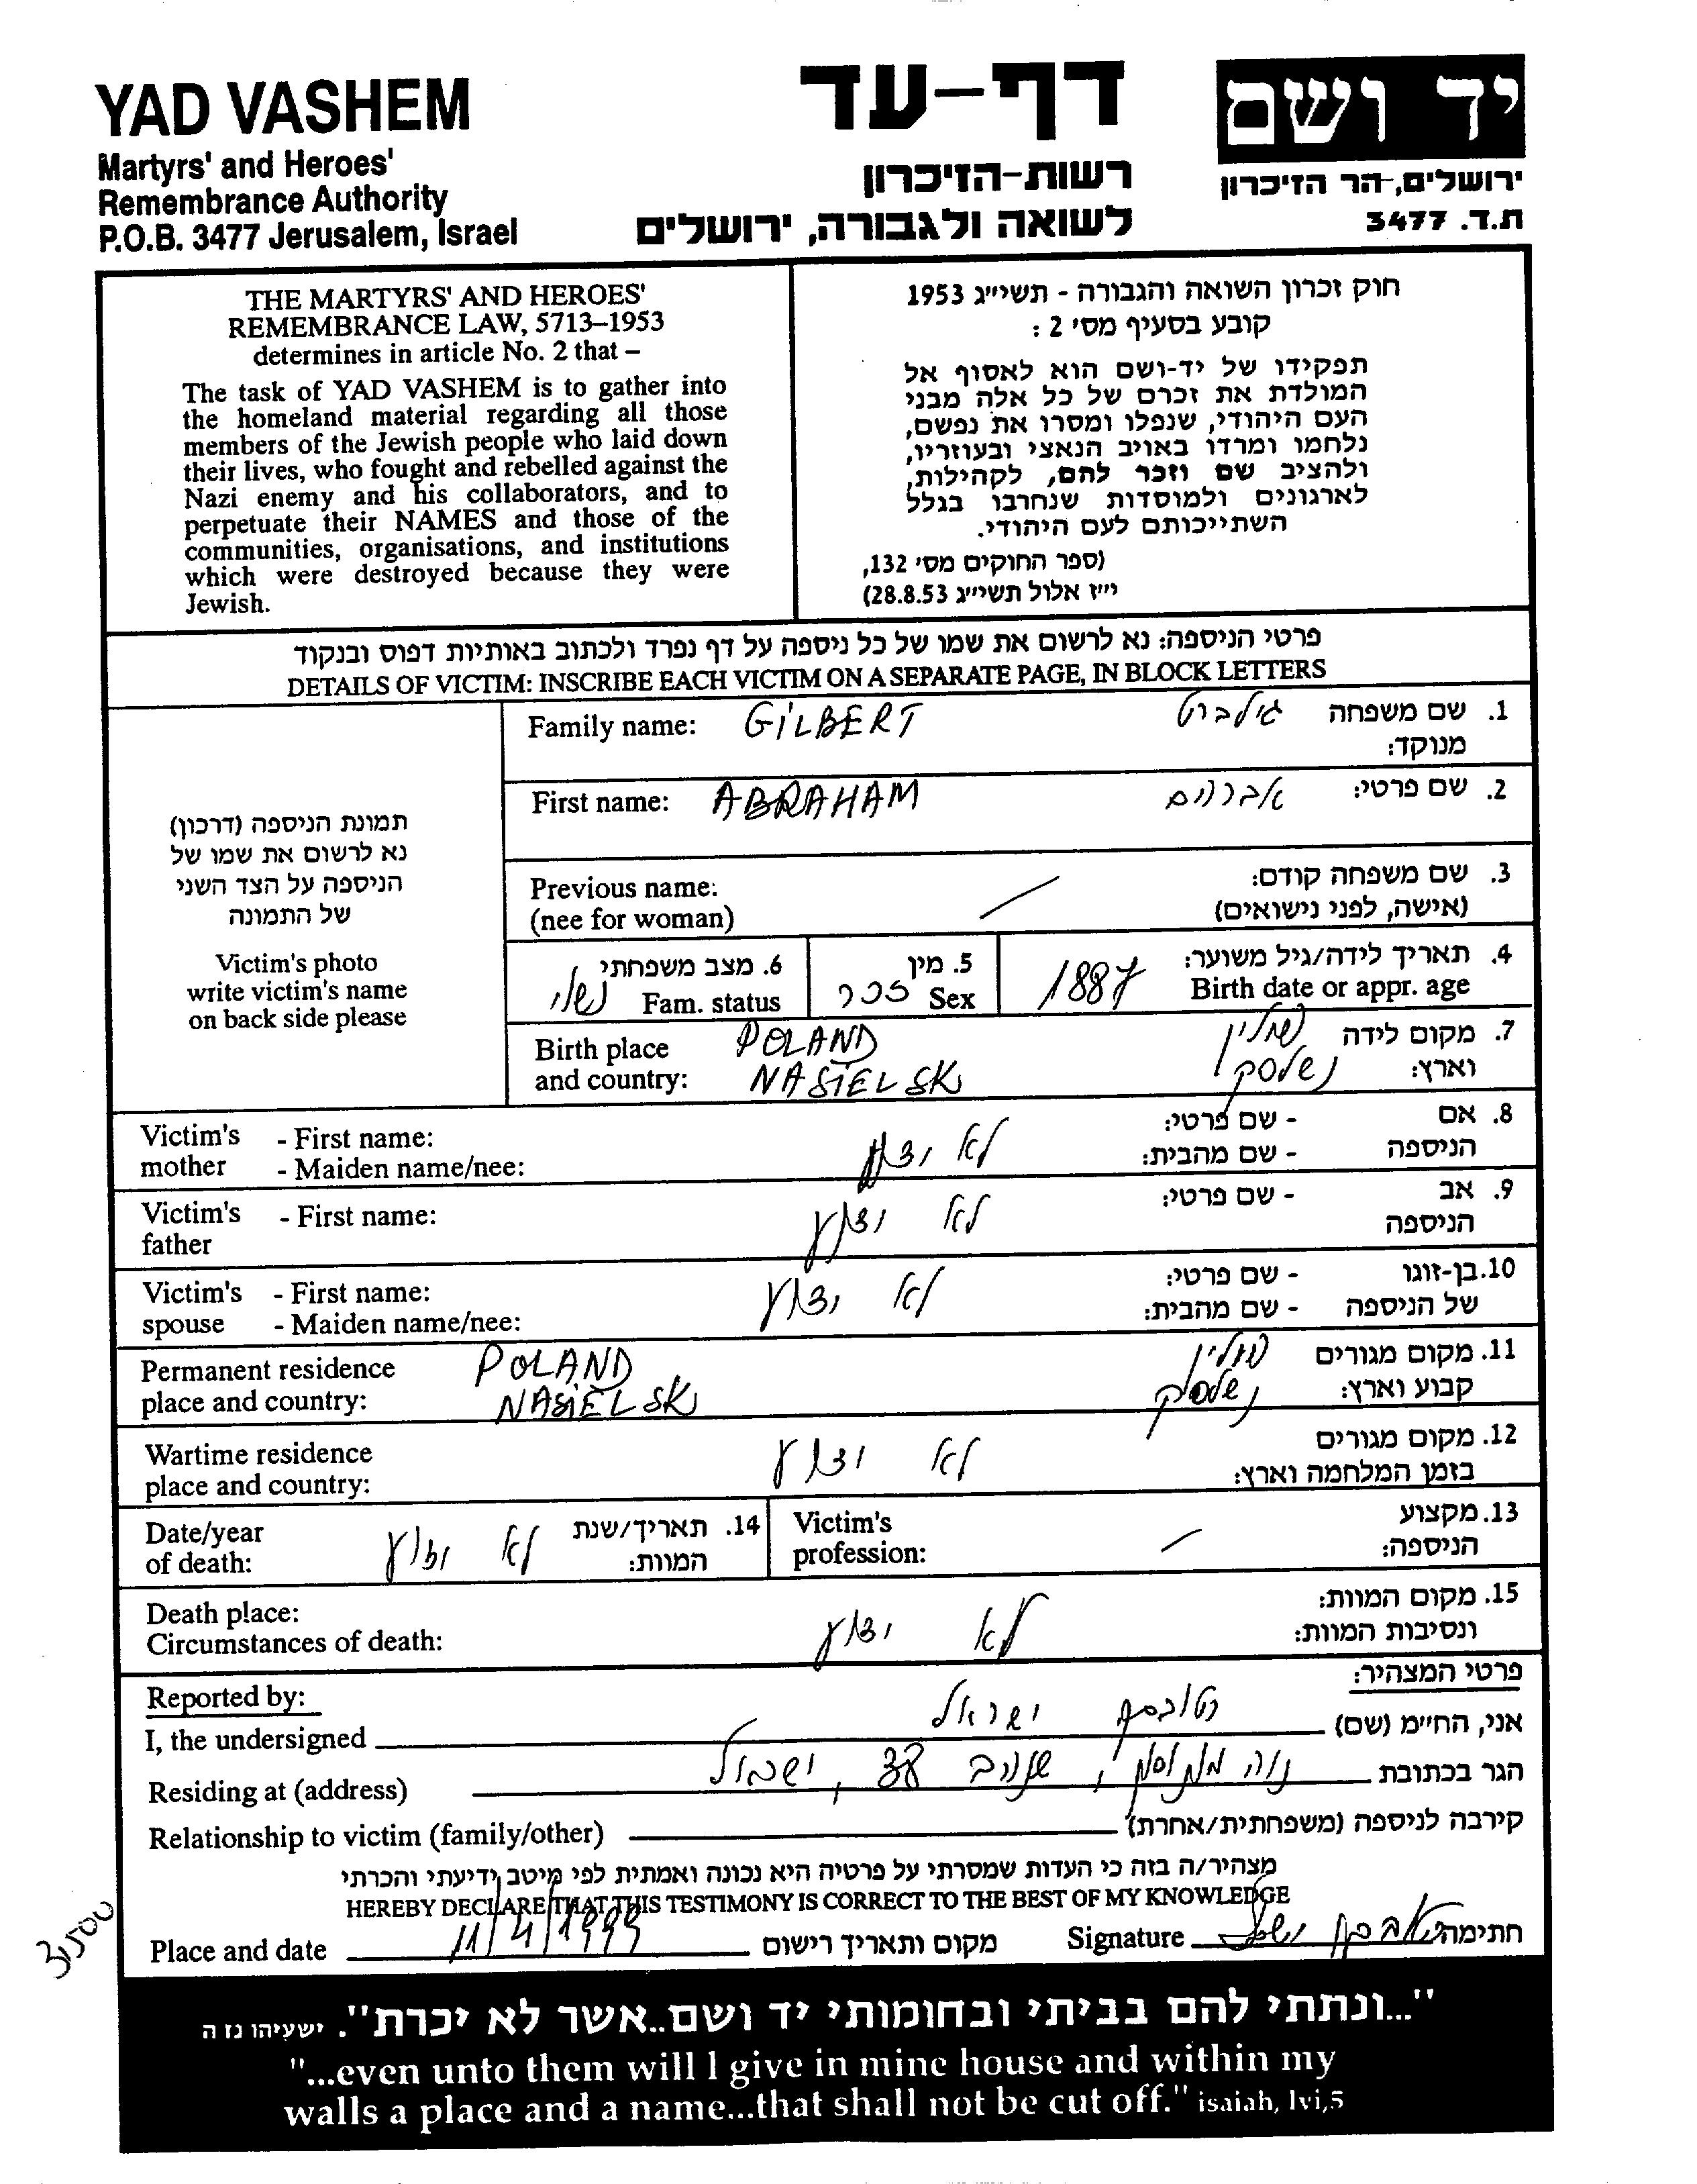 YAD VASHEM
Martyrs' and Heroes'
Remembrance Authority
P.O.B. 3477 Jerusalem, Israel
דף-עד
רשות-הזיכרון
לשואה ולגבורה, ירושלים
יד ושם
ירושלים, הר הזיכרון
ת.ד. 3477
THE MARTYRS' AND HEROES'
REMEMBRANCE LAW, 5713–1953
determines in article No. 2 that –
The task of YAD VASHEM is to gather into
the homeland material regarding all those
members of the Jewish people who laid down
their lives, who fought and rebelled against the
Nazi enemy and his collaborators, and to
perpetuate their NAMES and those of the
communities, organisations, and institutions
which were destroyed because they were
Jewish.
חוק זכרון השואה והגבורה - תשי״ג 1953
קובע בסעיף מס׳ 2 :
תפקידו של יד-ושם הוא לאסוף אל
המולדת את זכרם של כל אלה מבני
העם היהודי, שנפלו ומסרו את נפשם,
נלחמו ומרדו באויב הנאצי ובעוזריו,
ולהציב שם וזכר להם, לקהילות,
לארגונים ולמוסדות שנחרבו בגלל
השתייכותם לעם היהודי.
(ספר החוקים מס׳ 132,
י״ז אלול תשי״ג 28.8.53)
פרטי הניספה: נא לרשום את שמו של כל ניספה על דף נפרד ולכתוב באותיות דפוס ובנקוד
DETAILS OF VICTIM: INSCRIBE EACH VICTIM ON A SEPARATE PAGE, IN BLOCK LETTERS
תמונת הניספה (דרכון)
נא לרשום את שמו של
הניספה על הצד השני
של התמונה
Victim's photo
write victim's name
on back side please
Family name: GILBERT גילברט 1. שם משפחה
מנוקד:
First name: ABRAHAM אברהם 2. שם פרטי:
Previous name: 3. שם משפחה קודם:
(nee for woman) (אישה, לפני נישואים)
6. מצב משפחתי 5. מין 4. תאריך לידה/גיל משוער:
נשוי Fam. status זכר Sex 1887 Birth date or appr. age
Birth place POLAND פולין 7. מקום לידה
and country: NASIELSK נשלסק וארץ:
Victim's - First name: - שם פרטי: 8. אם
mother - Maiden name/nee: לא ידוע - שם מהבית: הניספה
Victim's - First name: לא ידוע - שם פרטי: 9. אב
father הניספה
Victim's - First name: לא ידוע - שם פרטי: 10. בן-זוגו
spouse - Maiden name/nee: - שם מהבית: של הניספה
Permanent residence POLAND פולין 11. מקום מגורים
place and country: NASIELSK נשלסק קבוע וארץ:
Wartime residence לא ידוע 12. מקום מגורים
place and country: בזמן המלחמה וארץ:
Date/year לא ידוע 14. תאריך/שנת Victim's 13. מקצוע
of death: המוות: profession: הניספה:
Death place: לא ידוע 15. מקום המוות:
Circumstances of death: ונסיבות המוות:
Reported by: פרטי המצהיר:
I, the undersigned ישראל אני, החי״מ (שם)
Residing at (address) נוה , ישראל הגר בכתובת
Relationship to victim (family/other) קירבה לניספה (משפחתית/אחרת)
מצהיר/ה בזה כי העדות שמסרתי על פרטיה היא נכונה ואמתית לפי מיטב ידיעתי והכרתי
HEREBY DECLARE THAT THIS TESTIMONY IS CORRECT TO THE BEST OF MY KNOWLEDGE
Place and date 11/4/1999 מקום ותאריך רישום Signature חתימה
"...ונתתי להם בביתי ובחומותי יד ושם..אשר לא יכרת". ישעיהו נז ה
"...even unto them will I give in mine house and within my
walls a place and a name...that shall not be cut off." isaiah, lvi,5